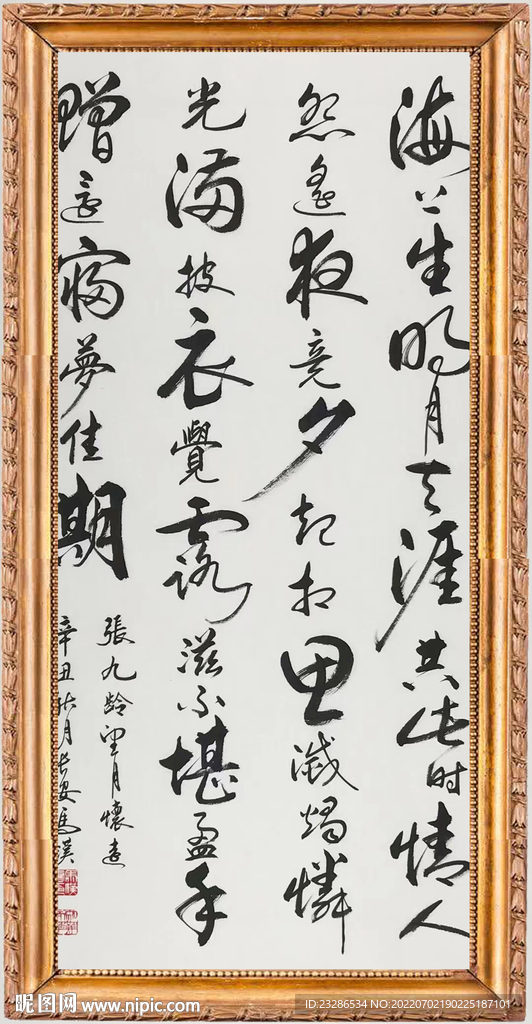 海上生明月天涯共此时情人
怨遙夜竟夕起相思滅燭憐
光滿披衣覺露滋不堪盈手
贈還寢夢佳期
張九龄望月懷遠
辛丑秋月长安馬
昵图网 www.nipic.com
ID:23286534 NO:20220702190225187101